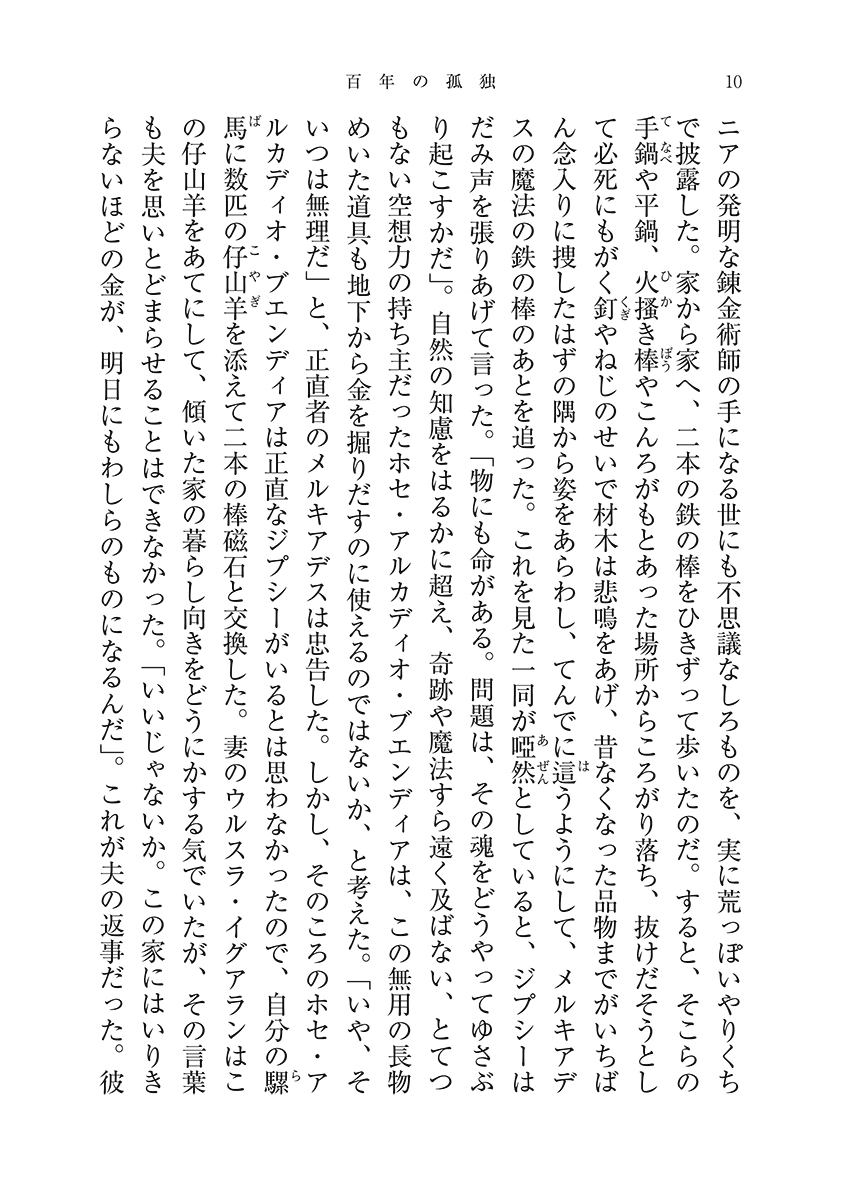 百年の孤独
10
ニアの発明な錬金術師の手になる世にも不思議なしろものを、実に荒っぽいやりくち
で披露した。家から家へ、二本の鉄の棒をひきずって歩いたのだ。すると、そこらの
手鍋や平鍋、火搔き棒やこんろがもとあった場所からころがり落ち、抜けだそうとし
て必死にもがく釘やねじのせいで材木は悲鳴をあげ、昔なくなった品物までがいちば
ん念入りに捜したはずの隅から姿をあらわし、てんでに這うようにして、メルキアデ
スの魔法の鉄の棒のあとを追った。これを見た一同が啞然としていると、ジプシーは
だみ声を張りあげて言った。「物にも命がある。問題は、その魂をどうやってゆさぶ
り起こすかだ」。自然の知慮をはるかに超え、奇跡や魔法すら遠く及ばない、とてつ
もない空想力の持ち主だったホセ・アルカディオ・ブエンディアは、この無用の長物
めいた道具も地下から金を掘りだすのに使えるのではないか、と考えた。「いや、そ
いつは無理だ」と、正直者のメルキアデスは忠告した。しかし、そのころのホセ・ア
ルカディオ・ブエンディアは正直なジプシーがいるとは思わなかったので、自分の騾
馬に数匹の仔山羊を添えて二本の棒磁石と交換した。妻のウルスラ・イグアランはこ
の仔山羊をあてにして、傾いた家の暮らし向きをどうにかする気でいたが、その言葉
も夫を思いとどまらせることはできなかった。「いいじゃないか。この家にはいりき
らないほどの金が、明日にもわしらのものになるんだ」。これが夫の返事だった。彼